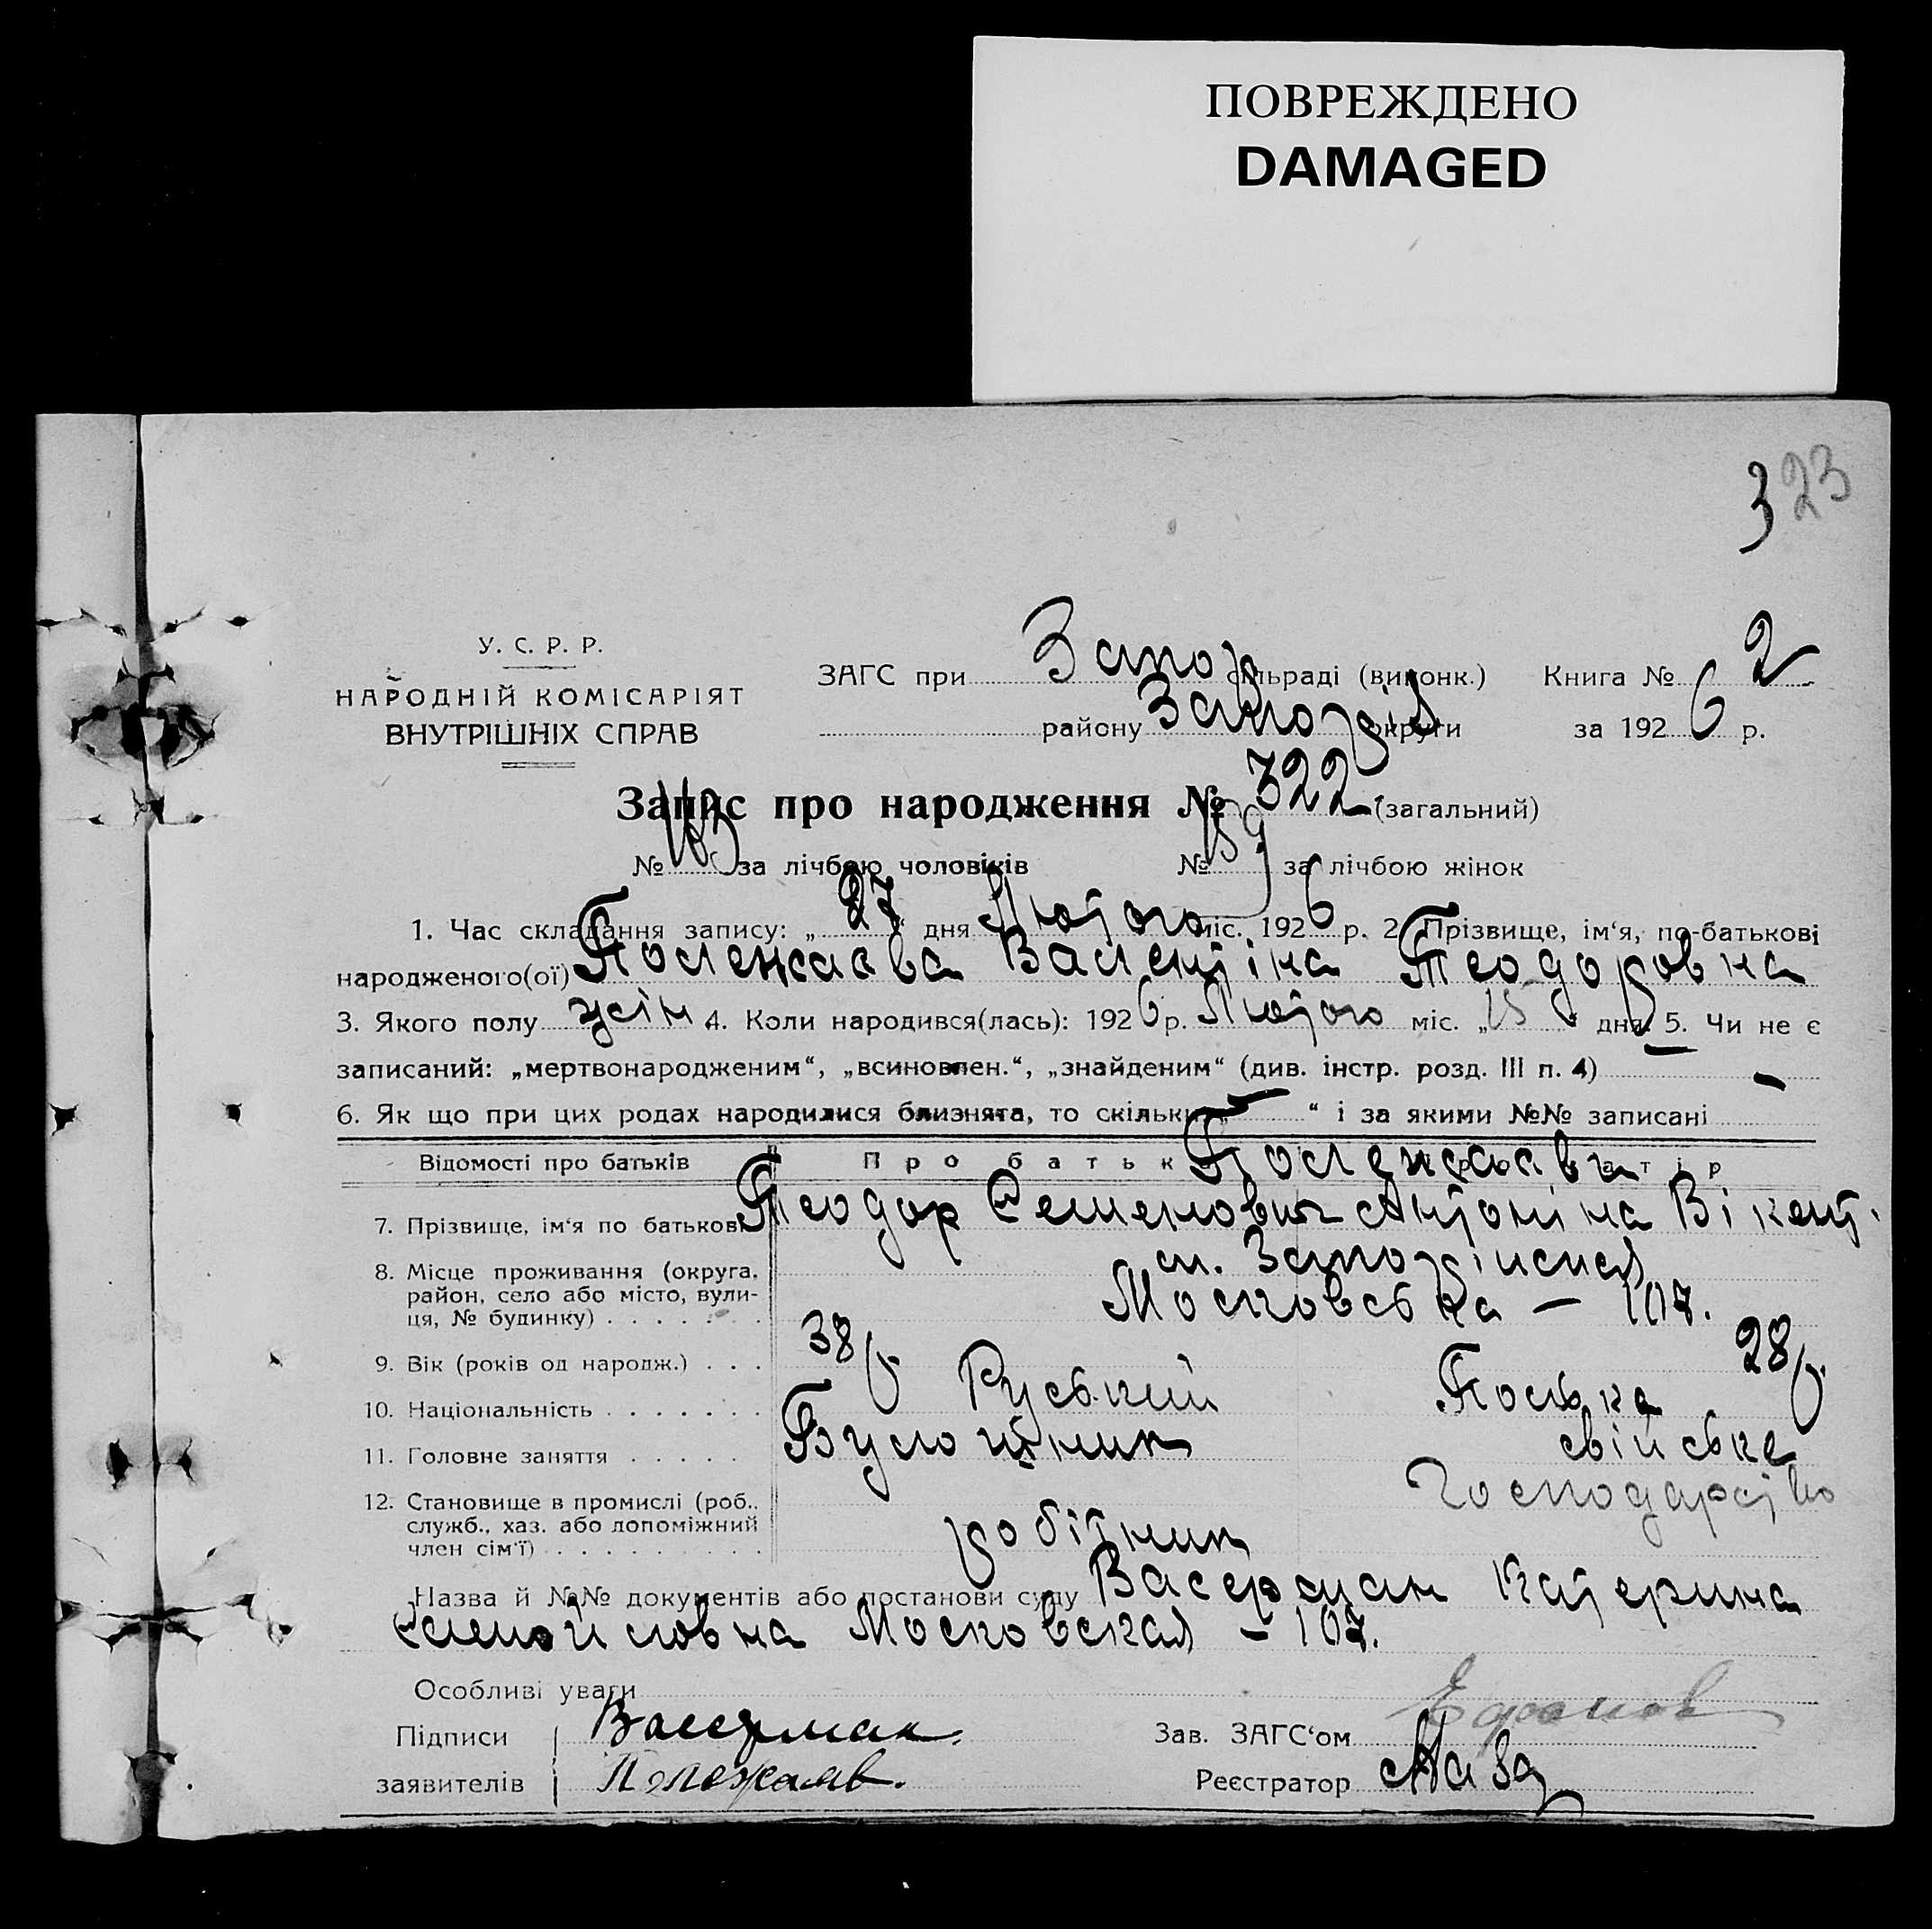 ПОВРЕЖДЕНО
DAMAGED
323
У. С. Р. Р.
НАРОДНІЙ КОМІСАРІЯТ
ВНУТРІШНІХ СПРАВ
ЗАГС при Запор сільраді (виконк.) Книга № 2
району Запоріз округи за 1926 р.
Запис про народження № 322 (загальний)
№ 163 за лічбою чоловіків № 159 за лічбою жінок
1. Час складання запису: „27“ дня Лютого міс. 1926 р. 2. Прізвище, ім‘я, по-батькові
народженого(ої) Полежаєва Валентіна Теодоровна
3. Якого полу жін 4. Коли народився(лась): 1926 р. Лютого міс. „15“ дня. 5. Чи не є
записаний: „мертвонародженим“, „всиновлен.“, „знайденим“ (див. інстр. розд. III п. 4) —
6. Як що при цих родах народилися близнята, то скільки „—“ і за якими №№ записані
Відомості про батьків Про батька Про матір
Полежаєви
7. Прізвище, ім‘я по батькові Теодор Семенович Антоніна Вікент.
8. Місце проживання (округа, район, село або місто, вули-ця, № будинку) . . . . . . .
м.
Московська — 107.
9. Вік (років од народж.) . . . 38 р. 28 р.
10. Національність . . . . . . . Руський Полька
11. Головне заняття . . . . . Булочник свійське
господарство
12. Становище в промислі (роб., служб., хаз. або допоміжний член сім‘ї) . . . . . . . . . робітник
Назва й №№ документів або постанови суду Васерман Катерина
Московская – 107.
Особливі уваги
Підписи Васерман. Зав. ЗАГС‘ом
заявителів Полежаев. Реєстратор